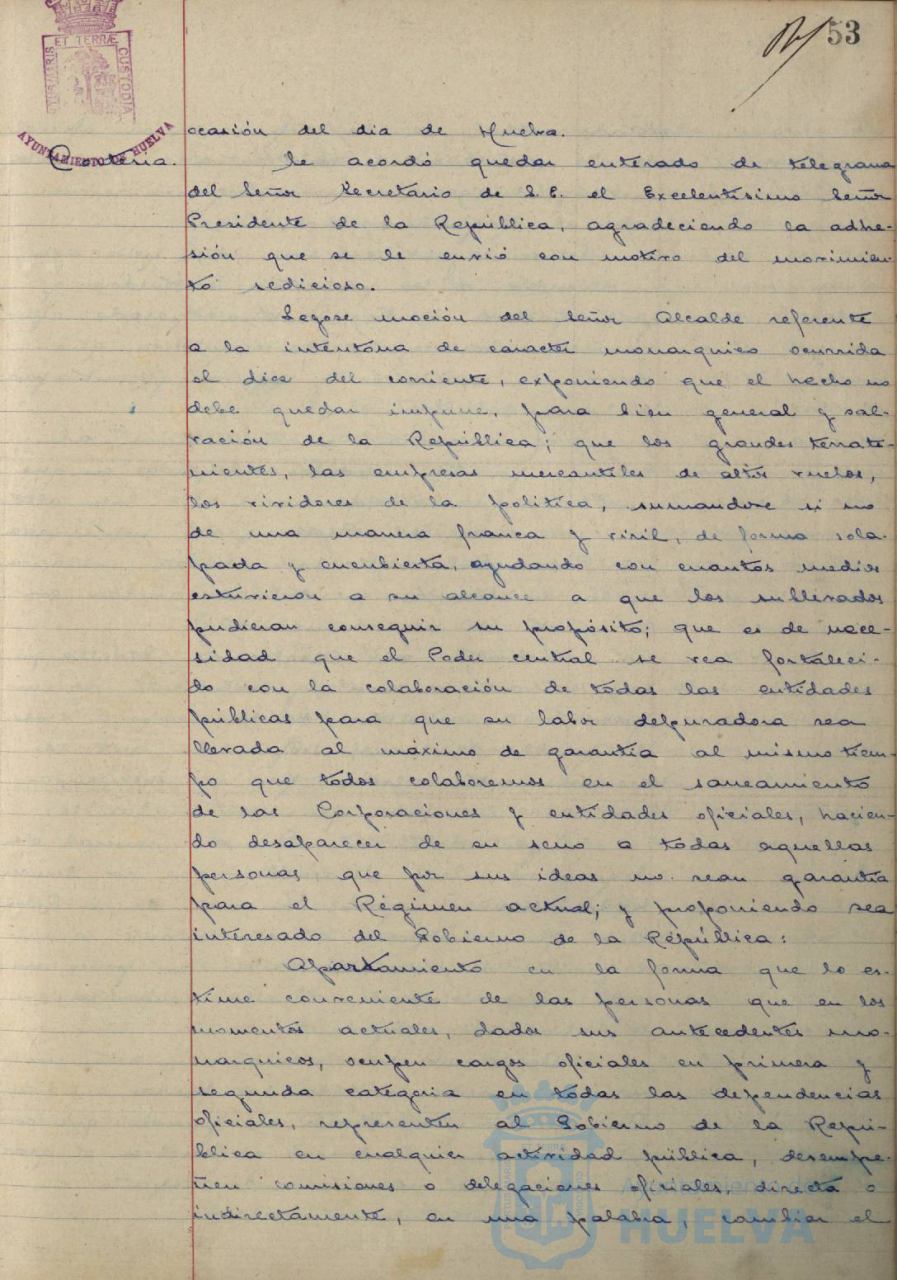 53
PORTUS MARIS ET TERRÆ CUSTODIA
AYUNTAMIENTO DE HUELVA
ocasión del dia de Huelva.
Se acordó quedar enterado de telegrama
del Señor Secretario de S. E. el Excelentísimo Señor
Presidente de la República, agradeciendo la adhe-
sión que se le envió con motivo del movimien-
to sedicioso.
Leyose moción del Señor Alcalde referente
a la intentona de caracter monarquico ocurrida
el diez del corriente, exponiendo que el hecho no
debe quedar impune, para bien general y sal-
vación de la República; que los grandes terrate-
nientes, las empresas mercantiles de altos vuelos,
los vividores de la política, sumandose si no
de una manera franca y viril, de forma sola-
pada y encubierta, ayudando con cuantos medios
estuvieron a su alcance a que los sublevados
pudieran conseguir su propósito; que es de nece-
sidad que el Poder central se vea fortaleci-
do con la colaboración de todas las entidades
públicas para que su labor depuradora sea
llevada al máximo de garantía al mismo tiem-
po que todos colaboremos en el saneamiento
de las Corporaciones y entidades oficiales, hacien-
do desaparecer de su seno a todas aquellas
personas que por sus ideas no sean garantía
para el Régimen actual; y proponiendo sea
interesado del Gobierno de la República:
Apartamiento en la forma que lo es-
time conveniente de las personas que en los
momentos actuales, dados sus antecedentes mo-
narquicos, ocupen cargos oficiales en primera y
segunda categoria en todas las dependencias
oficiales, representen al Gobierno de la Repú-
blica en cualquier actividad pública, desempe-
ñen comisiones o delegaciones oficiales, directa o
indirectamente, en una palabra, cambiar el
HUELVA